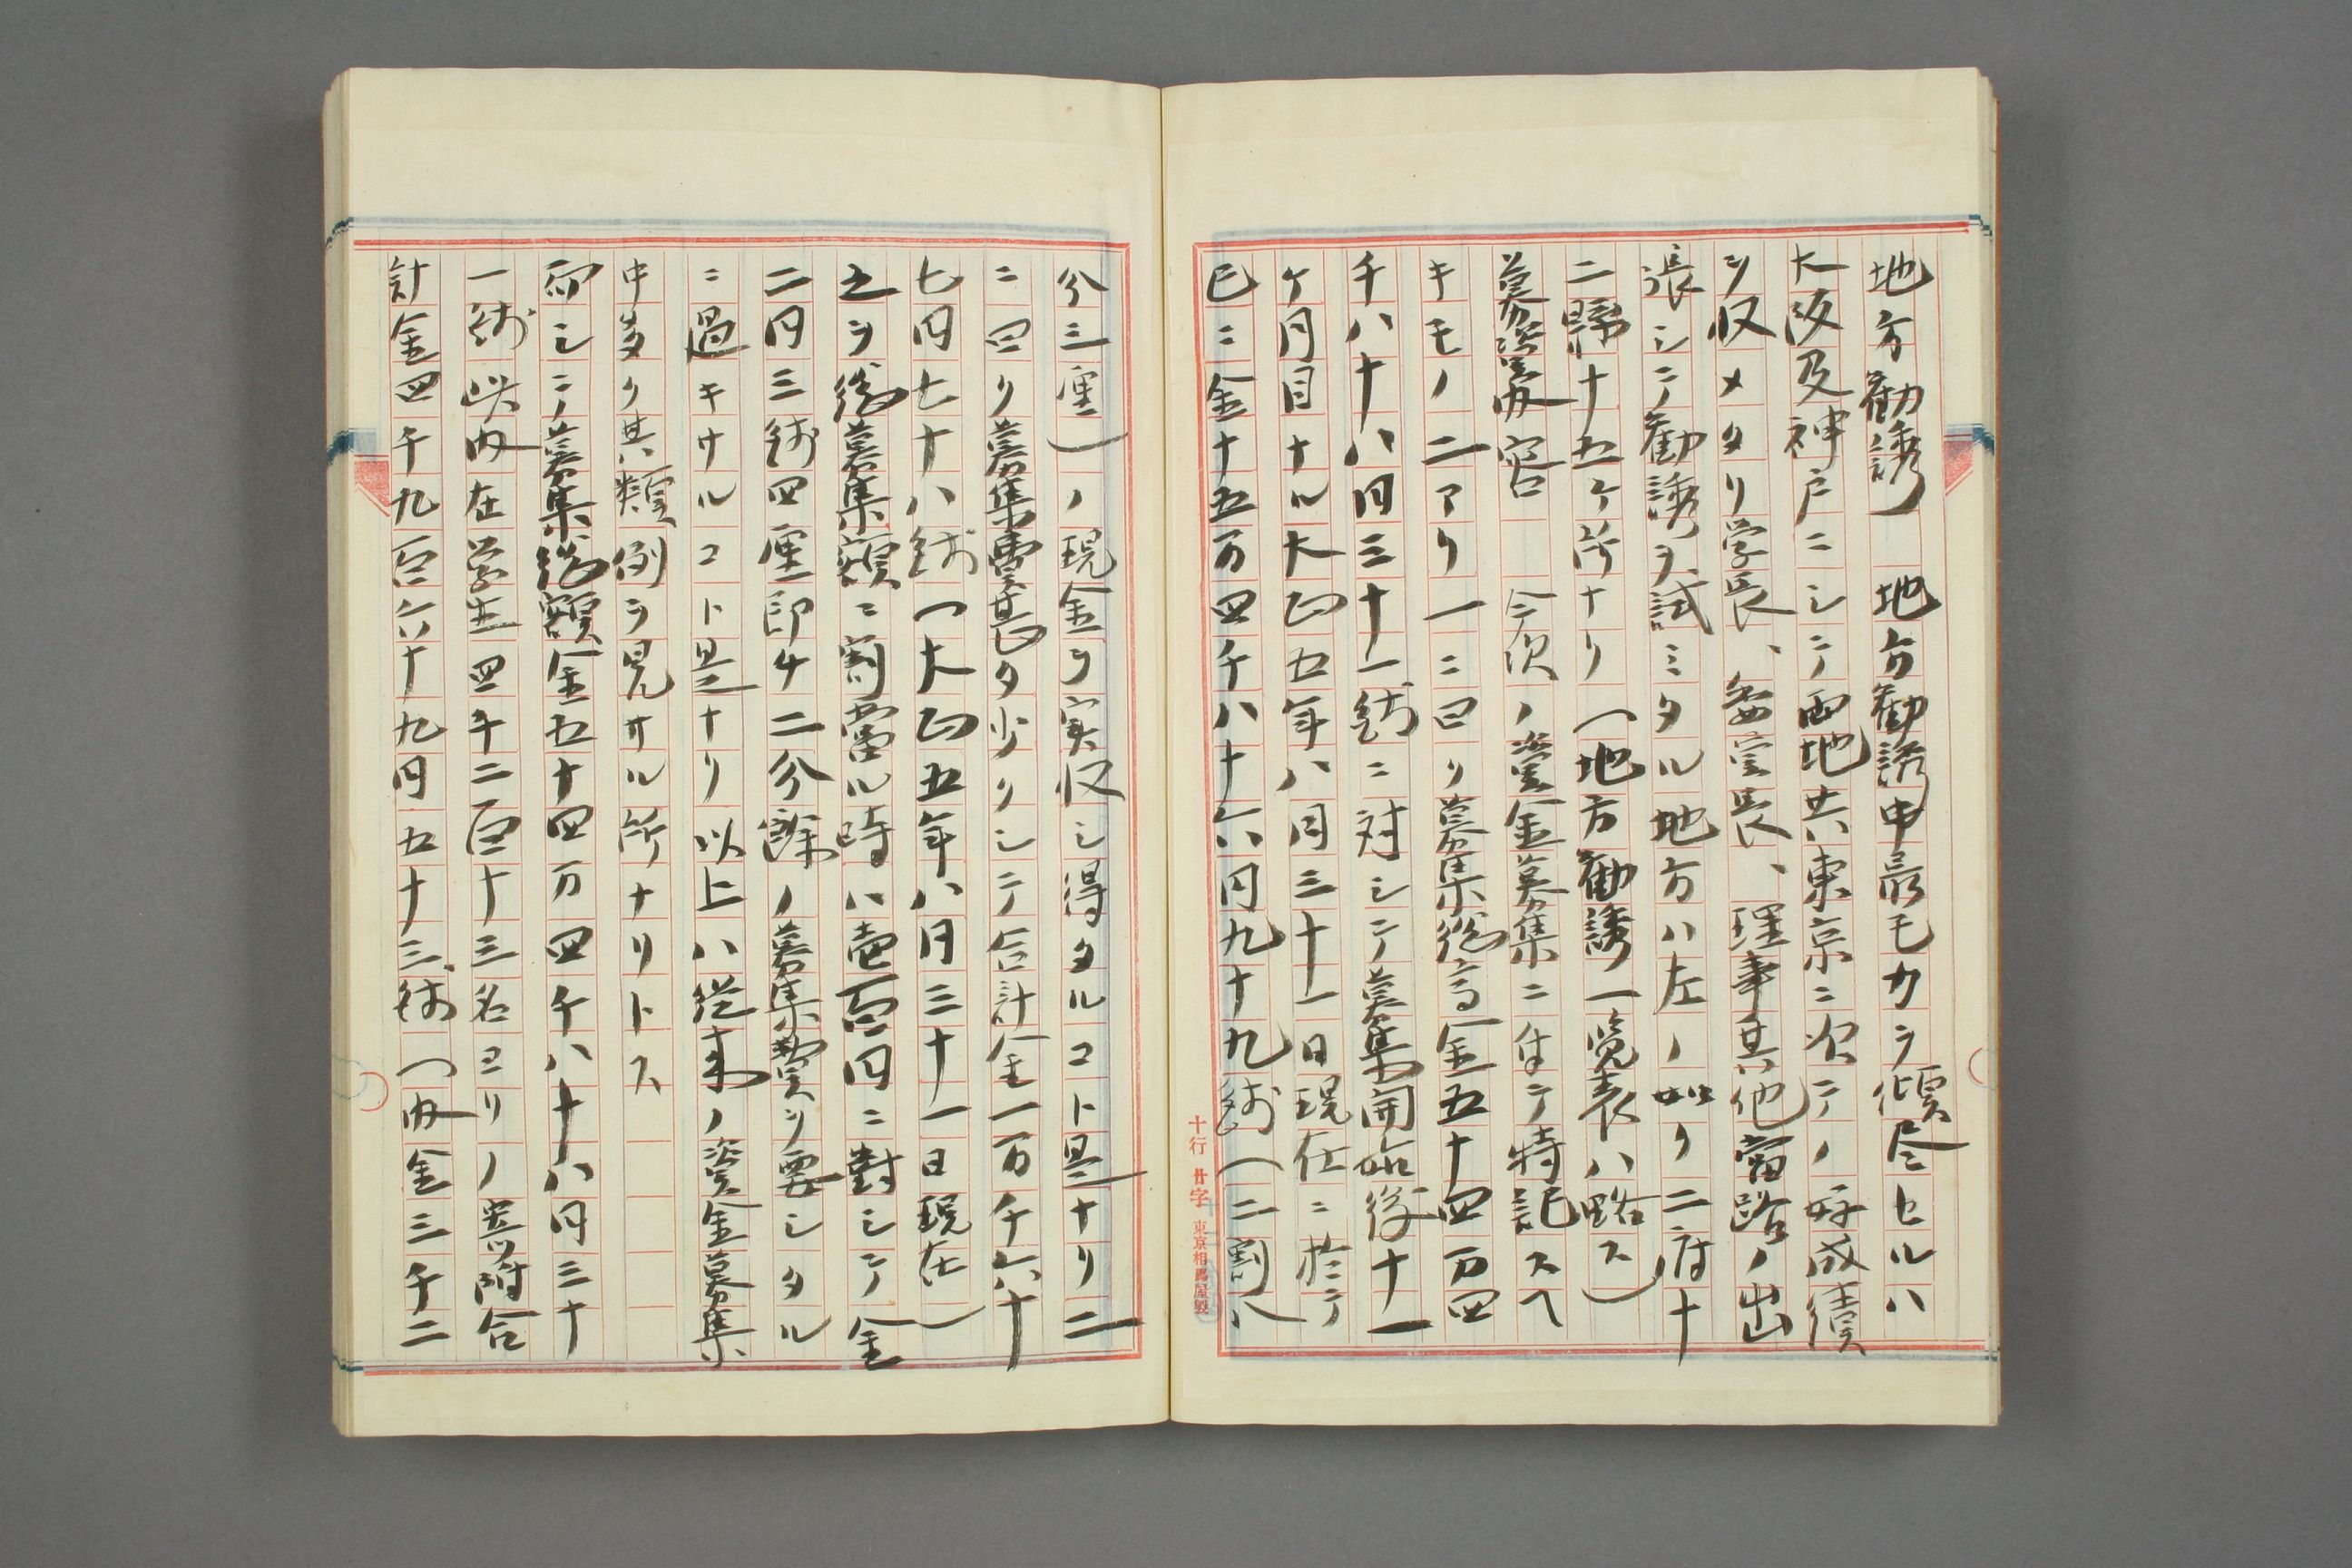 地方勧誘　地方勧誘中最モ力ヲ傾尽セルハ
大阪及神戸ニシテ両地共東京ニ次テノ好成績
ヲ収メタリ学長、委員長、理事其他当路ノ出
張シテ勧誘ヲ試ミタル地方ハ左ノ如ク二府十
二縣十五ケ所ナリ（地方勧誘一覧表ハ略ス）
募資内容　今次ノ資金募集ニ付テ特記スヘ
キモノ二アリ一ニ曰ク募集総高金五十四万四
千八十八円三十一銭ニ対シテ募集開始後十一
ケ月目ナル大正五年八月三十一日現在ニ於テ
已ニ金十五万四千八十六円九十九銭（二割八
十行 廿字 東京相馬屋製
分三厘）ノ現金ヲ実収シ得タルコト是ナリ二
ニ曰ク募集費甚タ少クシテ合計金一万千六十
七円七十八銭（大正五年八月三十一日現在）
之ヲ総募集額ニ割當ル時ハ壱百円ニ對シテ金
二円三銭四厘即チ二分餘ノ募集費ヲ要シタル
ニ過キサルコト是ナリ以上ハ従来ノ資金募集
中多ク其類例ヲ見サル所ナリトス
而シテ募集総額金五十四万四千八十八円三十
一銭此内在学生四千二百十三名ヨリノ寄附合
計金四千九百六十九円五十三銭（内金三千二